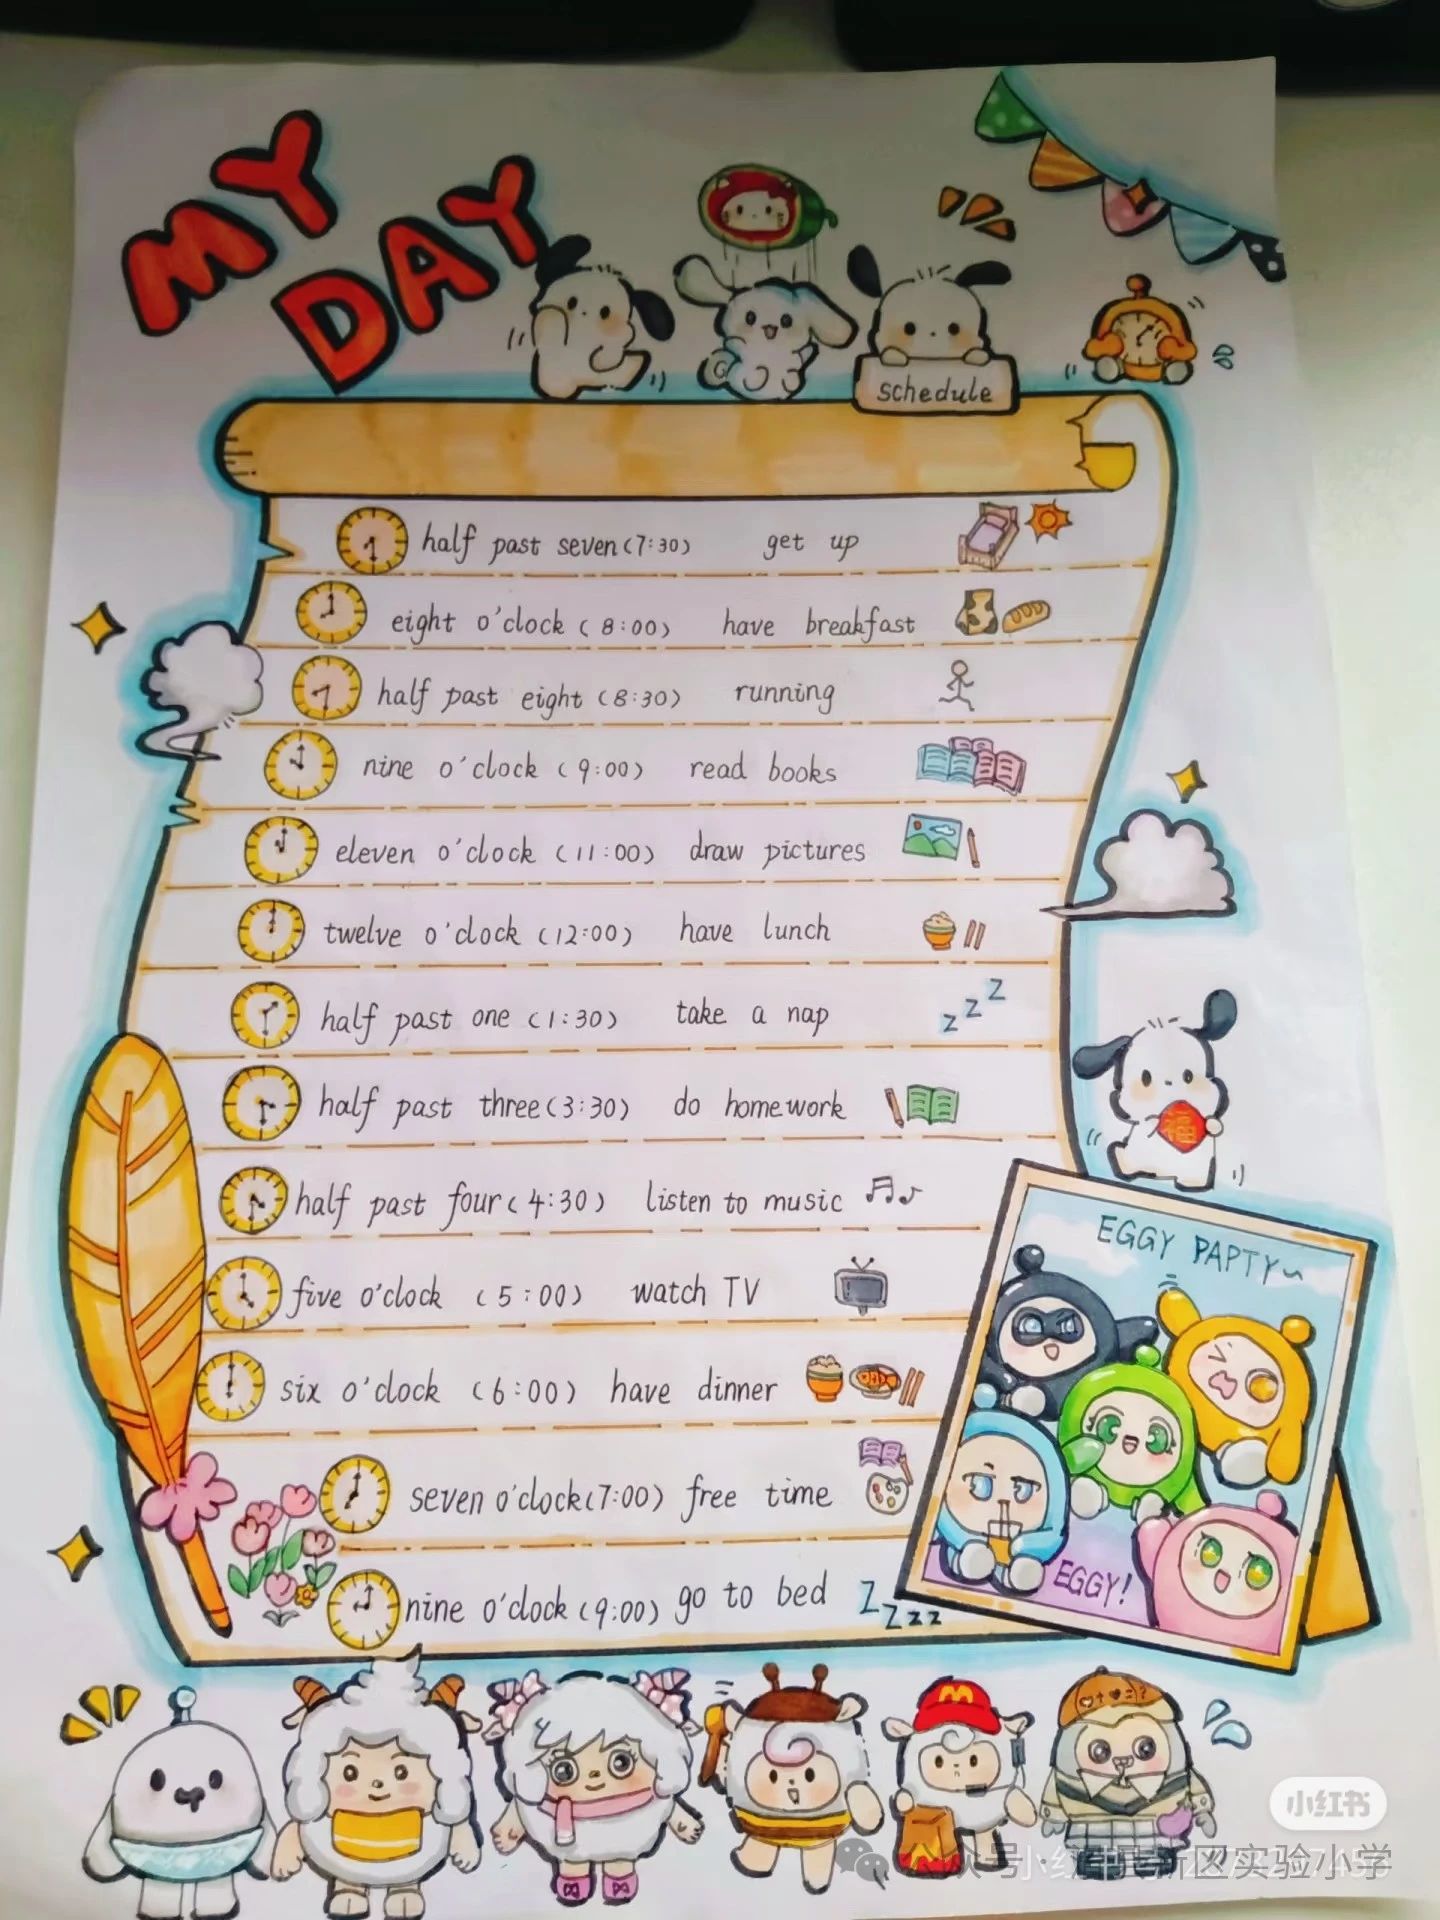 MY
DAY
schedule
half past seven(7:30) get up
eight o'clock (8:00) have breakfast
half past eight (8:30) running
nine o'clock (9:00) read books
eleven o'clock (11:00) draw pictures
twelve o'clock (12:00) have lunch
half past one (1:30) take a nap
zzz
half past three(3:30) do homework
福
half past four(4:30) listen to music
EGGY PAPTY~
five o'clock (5:00) watch TV
six o'clock (6:00) have dinner
seven o'clock(7:00) free time
EGGY!
nine o'clock(9:00) go to bed
Zzzz
小红书
公众号·
新区实验小学